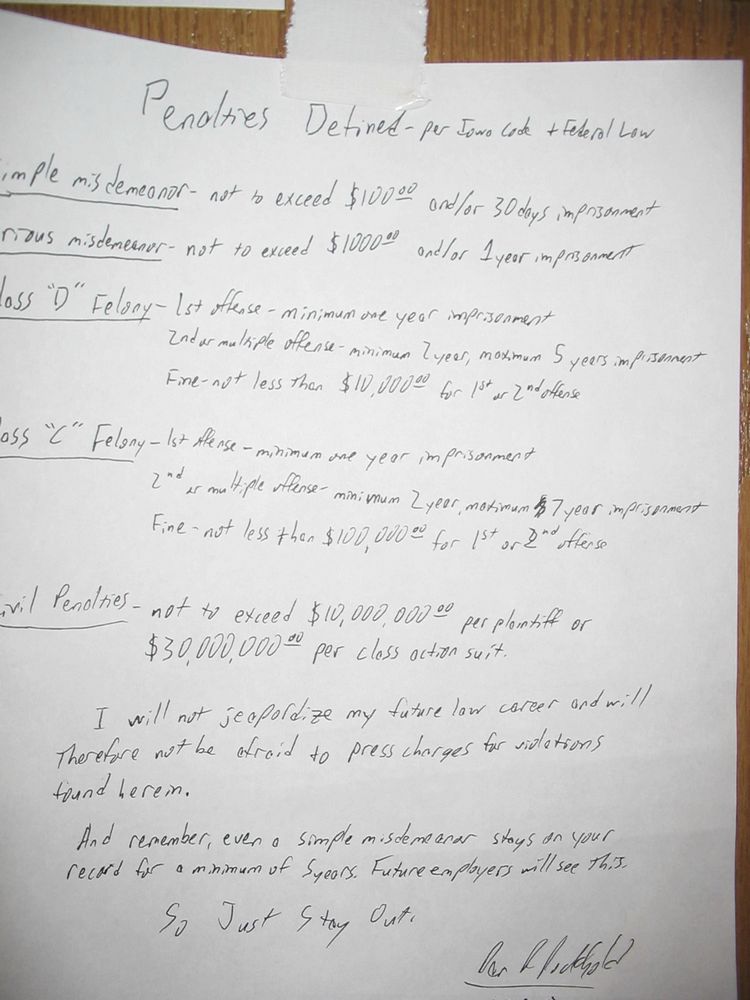 Penalties Defined - per Iowa Code + Federal Law
imple misdemeanor - not to exceed $100.00 and/or 30 days imprisonment
rious misdemeanor - not to exceed $1000.00 and/or 1 year imprisonment
lass "D" Felony - 1st offense - minimum one year imprisonment
2nd or multiple offense - minimum 2 year, maximum 5 years imprisonment
Fine - not less than $10,000.00 for 1st or 2nd offense
lass "C" Felony - 1st offense - minimum one year imprisonment
2nd or multiple offense - minimum 2 year, maximum 7 year imprisonment
Fine - not less than $100,000.00 for 1st or 2nd offense
ivil Penalties - not to exceed $10,000,000.00 per plaintiff or
$30,000,000.00 per class action suit.
I will not jeapordize my future law career and will
therefore not be afraid to press charges for violations
found herein.
And remember, even a simple misdemeanor stays on your
record for a minimum of 5 years. Future employers will see this.
So Just Stay Out.